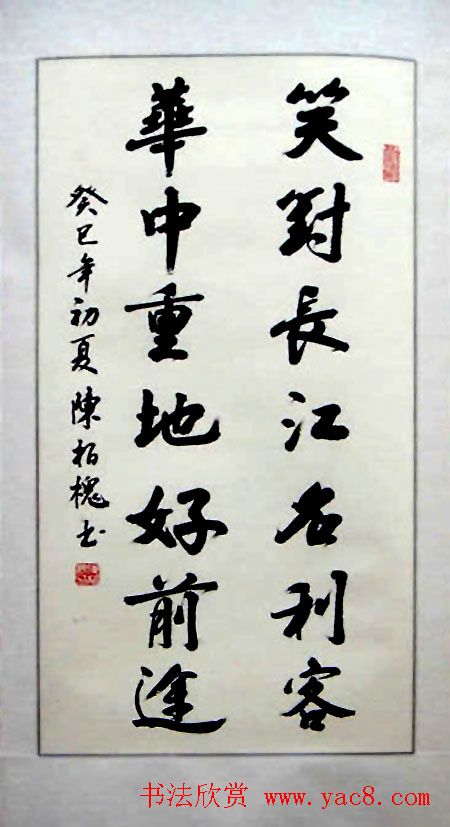 笑對長江名利客
華中重地好前途
癸巳年初夏陳柏槐书
书法欣赏 www.yac8.com